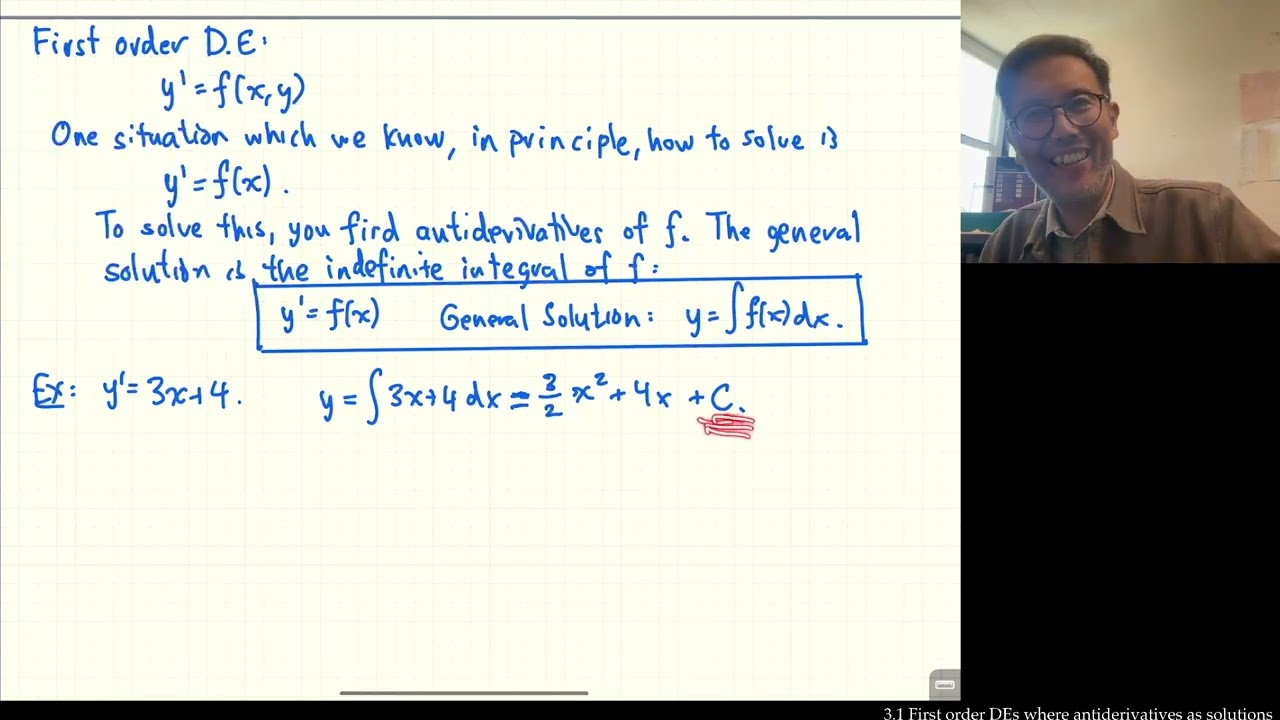 First order D.E:
y' = f(x,y)
One situation which we know, in principle, how to solve is
y' = f(x).
To solve this, you find antiderivatives of f. The general
solution is the indefinite integral of f:
y' = f(x) General Solution: y = ∫ f(x) dx.
Ex: y' = 3x+4. y = ∫ 3x+4 dx = 3/2 x² + 4x + C.
3.1 First order DEs where antiderivatives as solutions